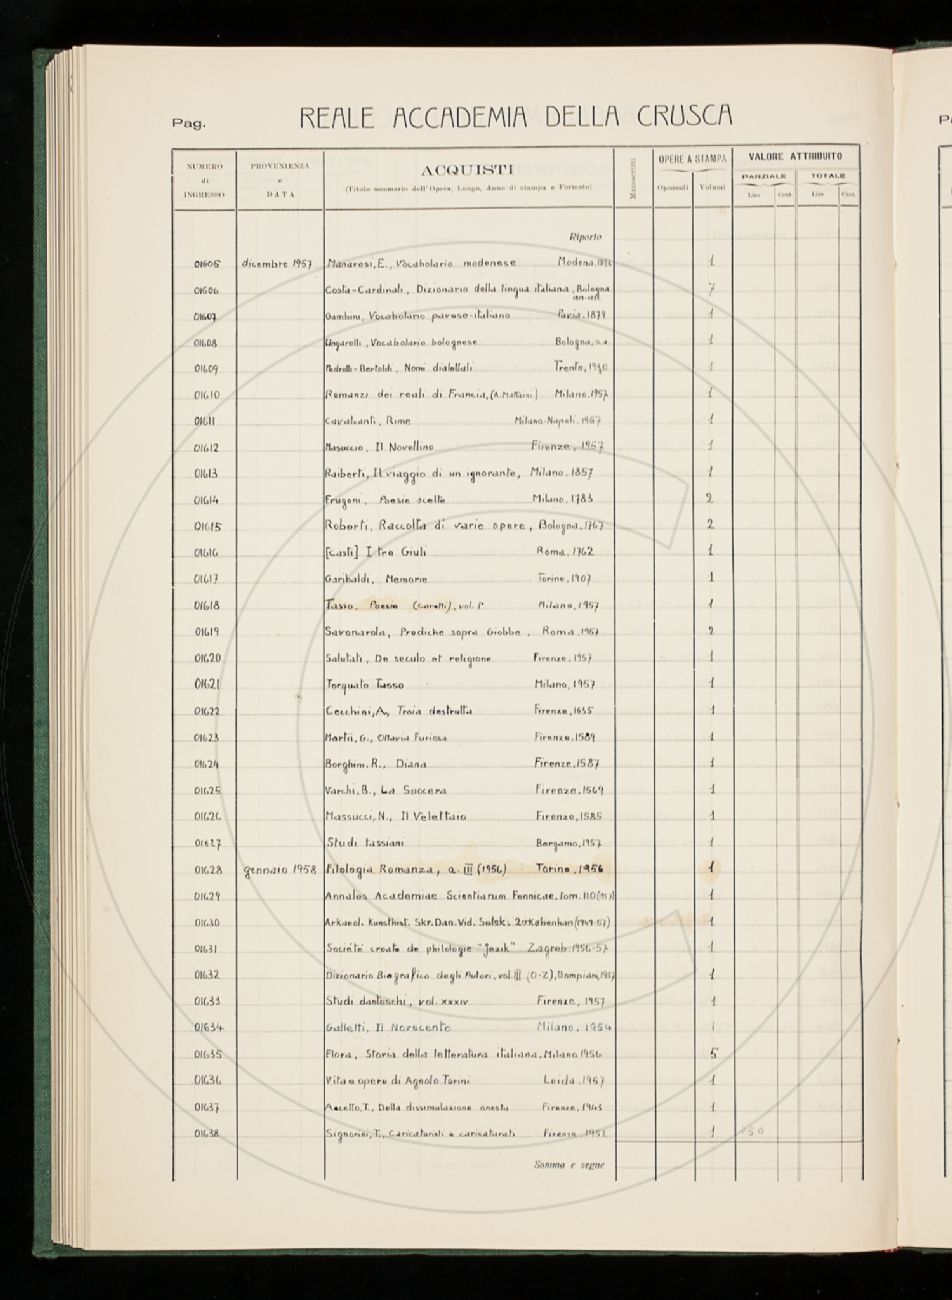 Pag. REALE ACCADEMIA DELLA CRUSCA
NUMERO di INGRESSO PROVENIENZA e DATA ACQUISTI (Titolo sommario dell'Opera, Luogo, Anno di stampa e Formato) Manoscritti OPERE A STAMPA Opuscoli Volumi VALORE ATTRIBUITO PARZIALE Lire Cent. TOTALE Lire Cent.
Riporto
01605 dicembre 1957 Manaresi, E., Vocabolario modenese Modena, 1
01606 Costa-Cardinali, Dizionario della lingua italiana, Bologna 7
01607 Gambini, Vocabolario pavese-italiano Pavia, 1879 1
01608 Ungarelli, Vocabolario bolognese Bologna, s.a. 1
01609 Pedrotti-Bertoldi, Nomi dialettali Trento, 1930 1
01610 Romanzi dei reali di Francia, (A. Mattaini) Milano, 1957 1
01611 Cavalcanti, Rime Milano-Napoli, 1957 1
01612 Masuccio, Il Novellino Firenze, 1957 1
01613 Raiberti, Il viaggio di un ignorante, Milano, 1857 1
01614 Frugoni, Poesie scelte Milano, 1783 2
01615 Roberti, Raccolta di varie opere, Bologna, 1767 2
01616 [Casti] I tre Giuli Roma, 1762 1
01617 Garibaldi, Memorie Torino, 1907 1
01618 Tasso, Poesie (Caretti), vol. I° Milano, 1957 1
01619 Savonarola, Prediche sopra Giobbe, Roma, 1957 2
01620 Salutati, De seculo et religione Firenze, 1957 1
01621 Torquato Tasso Milano, 1957 1
01622 Cecchini, A., Troia destrutta Firenze, 1635 1
01623 Martii, G., Ottavia Furiosa Firenze, 1589 1
01624 Borghini, R., Diana Firenze, 1587 1
01625 Varchi, B., La Suocera Firenze, 1569 1
01626 Massucci, N., Il Velettaio Firenze, 1585 1
01627 Studi tassiani Bergamo, 1957 1
01628 gennaio 1958 Filologia Romanza, a. III (1956) Torino, 1956 1
01629 Annales Academiae Scientiarum Fennicae, tom. 110 (1957) 1
01630 Arkaeol. Kunsthist. Skr. Dan. Vid. Selsk. København (1949-57) 1
01631 Société croate de philologie "Jezik" Zagreb 1956-57 1
01632 Dizionario Biografico degli Autori, vol. III (O-Z), Bompiani, 1957 1
01633 Studi danteschi, vol. XXXIV Firenze, 1957 1
01634 Galletti, Il Novecento Milano, 1954 1
01635 Flora, Storia della letteratura italiana, Milano 1956 5
01636 Vita e opere di Agnolo Torini Leida, 1957 1
01637 Accetto, T., Della dissimulazione onesta Firenze, 1943 1
01638 Signorini, T., Caricaturisti e caricaturati Firenze, 1952 1
Somma e segue